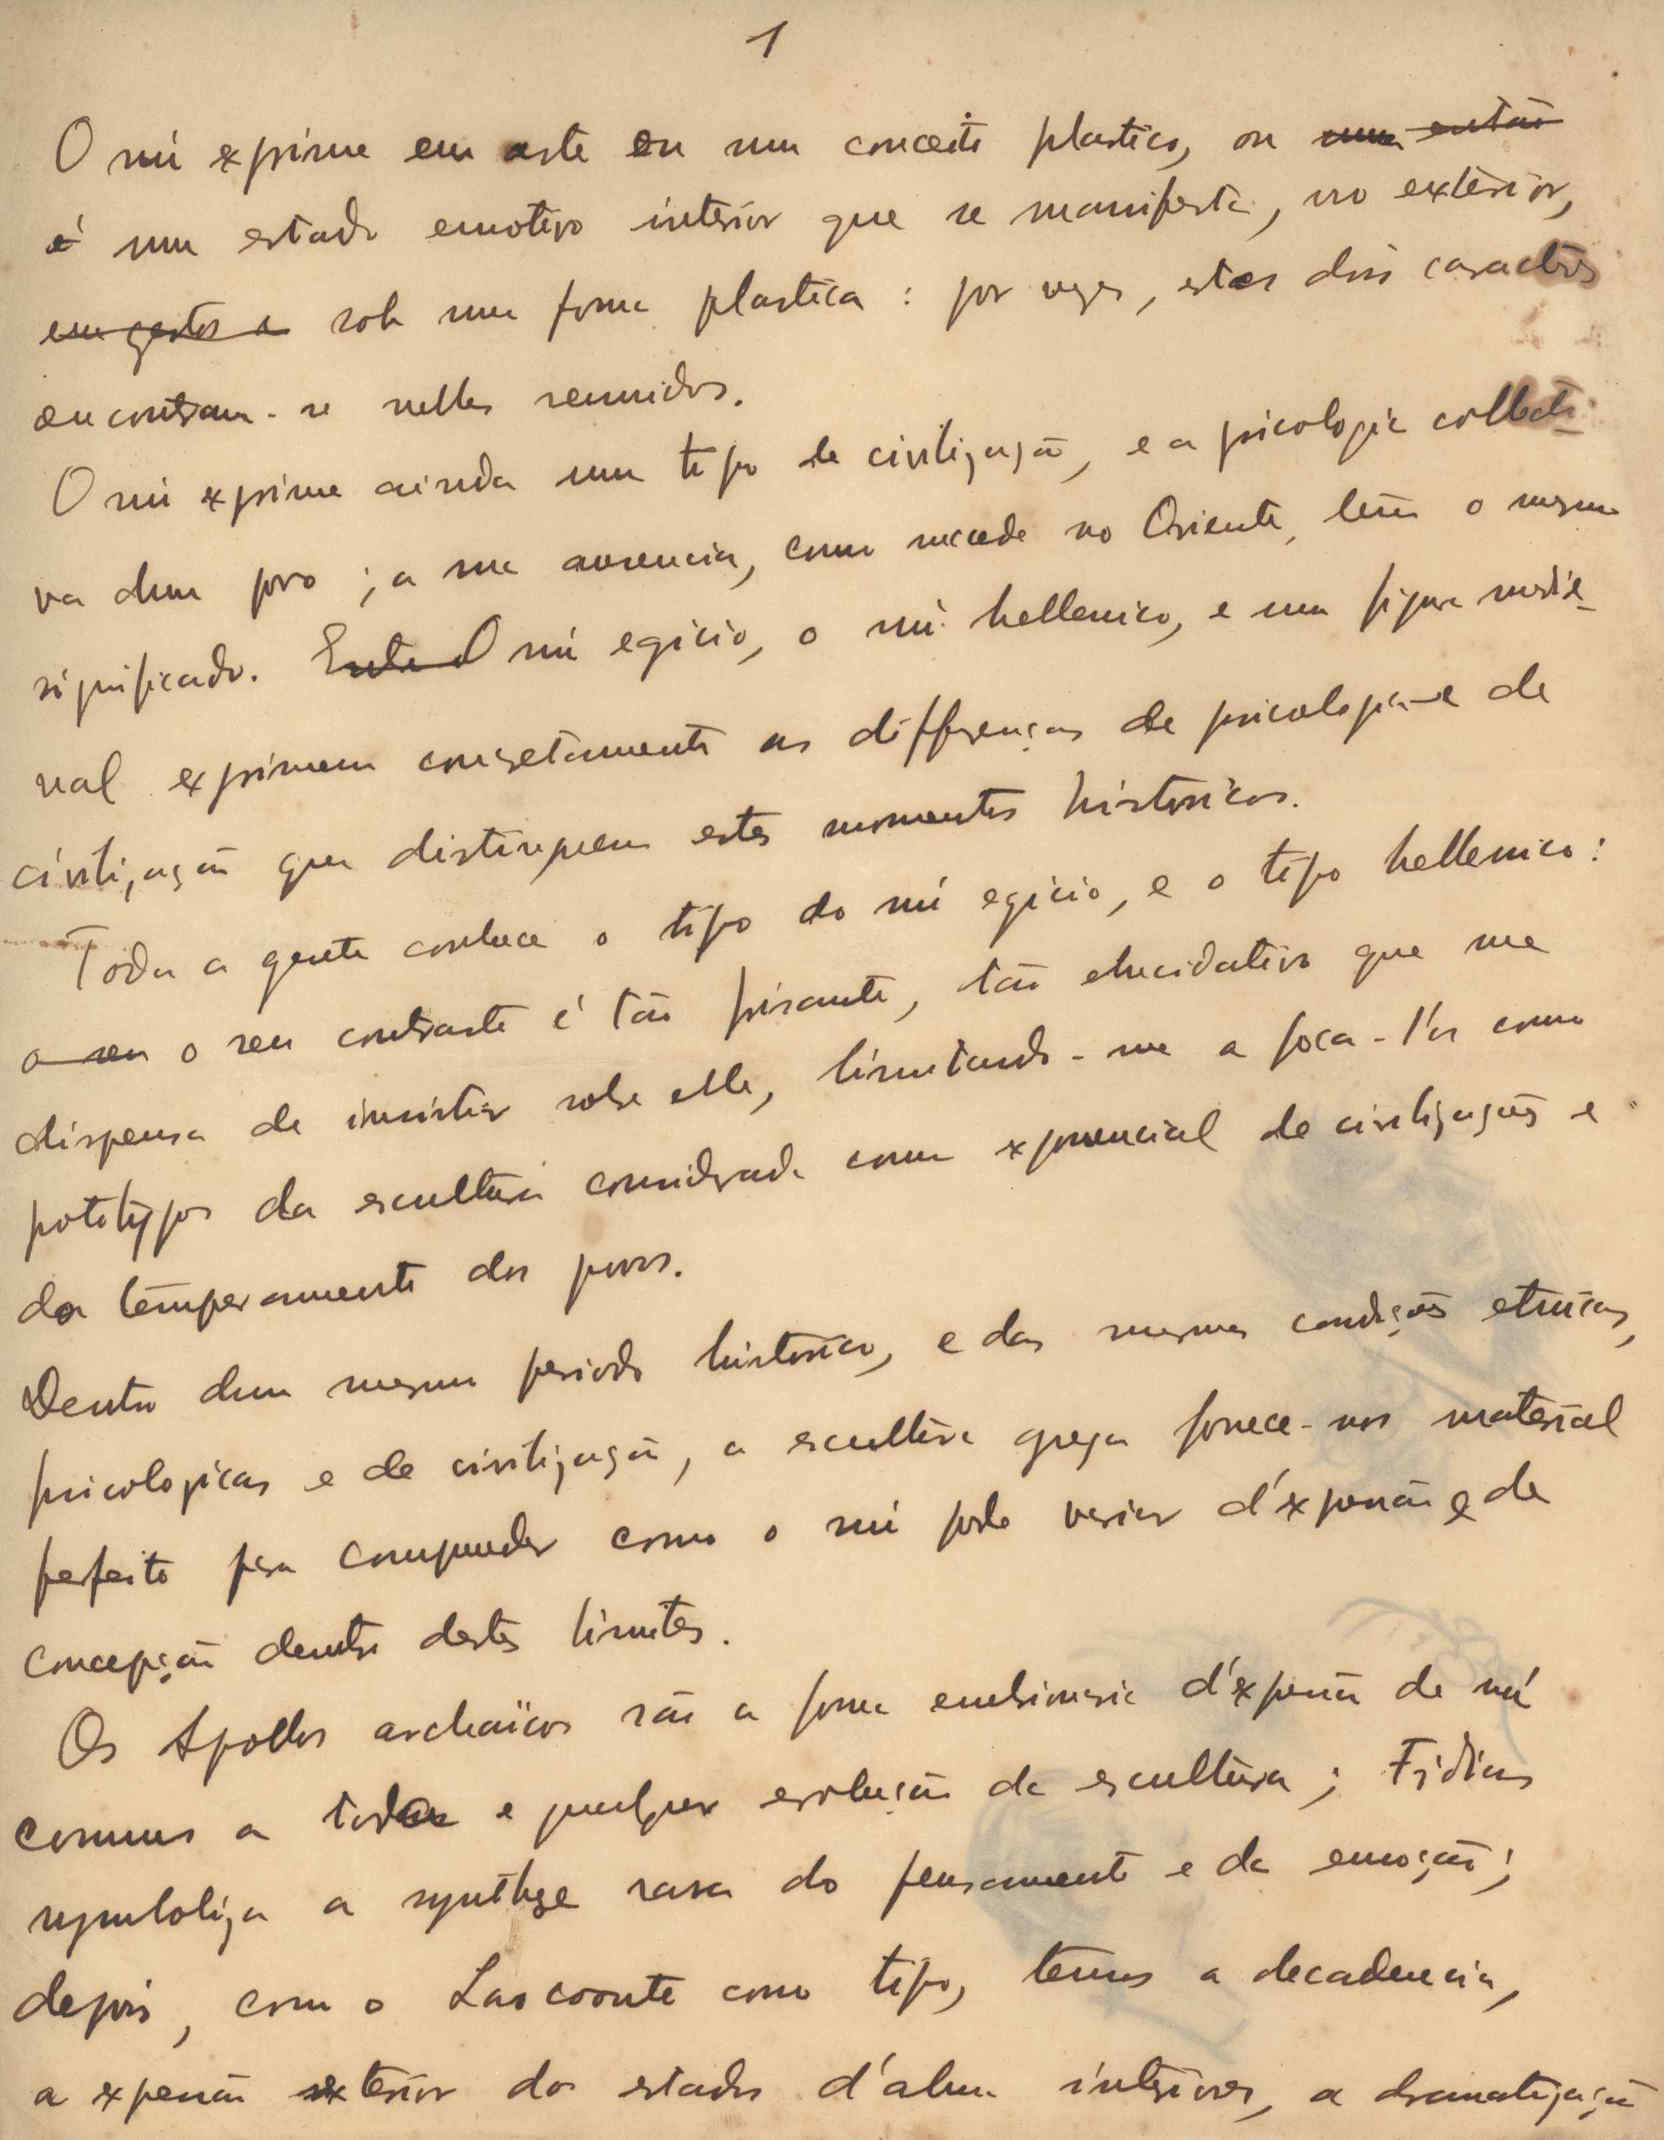 1
O nú exprime em arte ou um conceito plastico, ou uma então
é um estado emotivo interior que se manifesta, no exterior,
em gestos e sob uma forma plastica : por vezes, estes dois caracteres
encontram-se nelles reunidos.
O nú exprime ainda um tipo de civilização, e a psicologia collecti-
va dum povo ; a sua ausencia, como sucede no Oriente, tem o mesmo
significado. Entre O nú egicio, o nú hellenico, e uma figura medie-
val exprimem concretamente as differenças de psicologia e de
civilização que distinguem estes momentos historicos.
Toda a gente conhece o tipo do nú egicio, e o tipo hellenico :
o seu o seu contraste é tão frisante, tão elucidativo que me
dispensa de insistir sobre elle, limitando-me a foca-l'os como
prototypos da escultura considerada como exponencial de civilizações e
do temperamento dos povos.
Dentro dum mesmo periodo historico, e das mesmas condições etnicas,
psicologicas e de civilização, a escultura grega fornece-nos material
perfeito para comprender como o nú pode variar d'expressão e de
concepção dentro destes limites.
Os Apollos archaïcos são a forma embrionaria d'expressão de nú
comuns a toda e qualquer evolução da escultura ; Fidias
symboliza a synthese rara do pensamento e da emoção ;
depois, com o Laocoonte como tipo, temos a decadencia,
a expressão exterior dos estados d'alma interiores, a dramatização